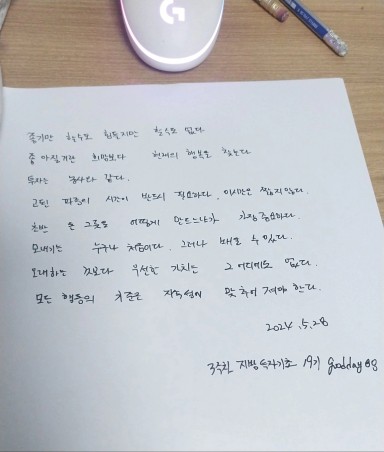 즐기만 할수도 힘들지만 할수도 없다
좋아질거란 희망보다 현재의 행복을 찾는다
투자는 농사와 같다.
고된 과정이 시간이 반드시 필요하다. 이시간은 짧지않다.
초반 큰 그릇을 어떻게 만드느냐가 가장 중요하다.
모내기는 누구나 처음이다. 그러나 배울 수 있다.
오래하는 것보다 우선한 가치는 그 어디에도 없다.
모든 행동의 기준은 지속성에 맞추어 져야 한다.
2024.5.28
지방투자기초 19기 goodday88